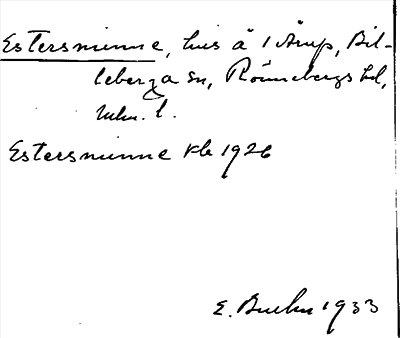 Estersminne, hus å 1 Årup, Bil-
leberga sn, Rönnebergs hd,
Mlm. l.
Estersminne Kb 1926
E. Buehn 1933